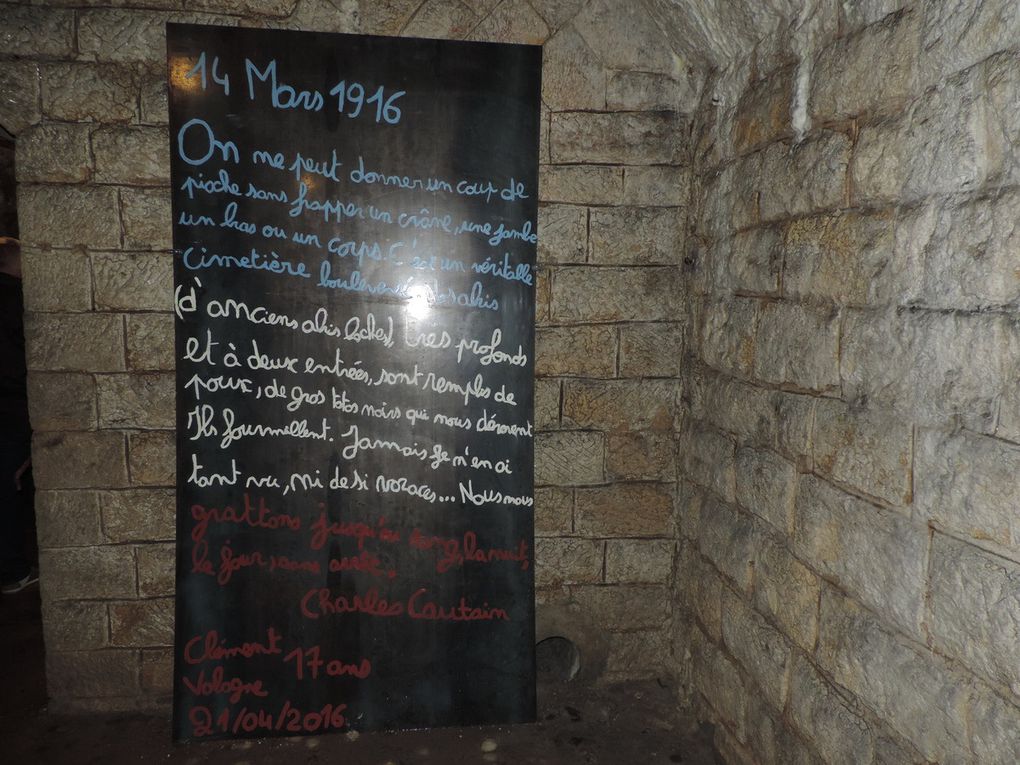 14 Mars 1916
On ne peut donner un coup de
pioche sans frapper un crâne, une jambe
un bras ou un corps. C'est un véritable
cimetière bouleversé. Nos abris
(d'anciens abris boches), très profonds
et à deux entrées, sont remplis de
poux, de gros totos noirs qui nous dévorent
Ils fourmillent. Jamais je n'en ai
tant vu, ni de si voraces... Nous nous
grattons jusqu'au sang, la nuit,
le jour, sans arrêt.
Charles Cautain
Clément 17 ans
Vologne
21/04/2016